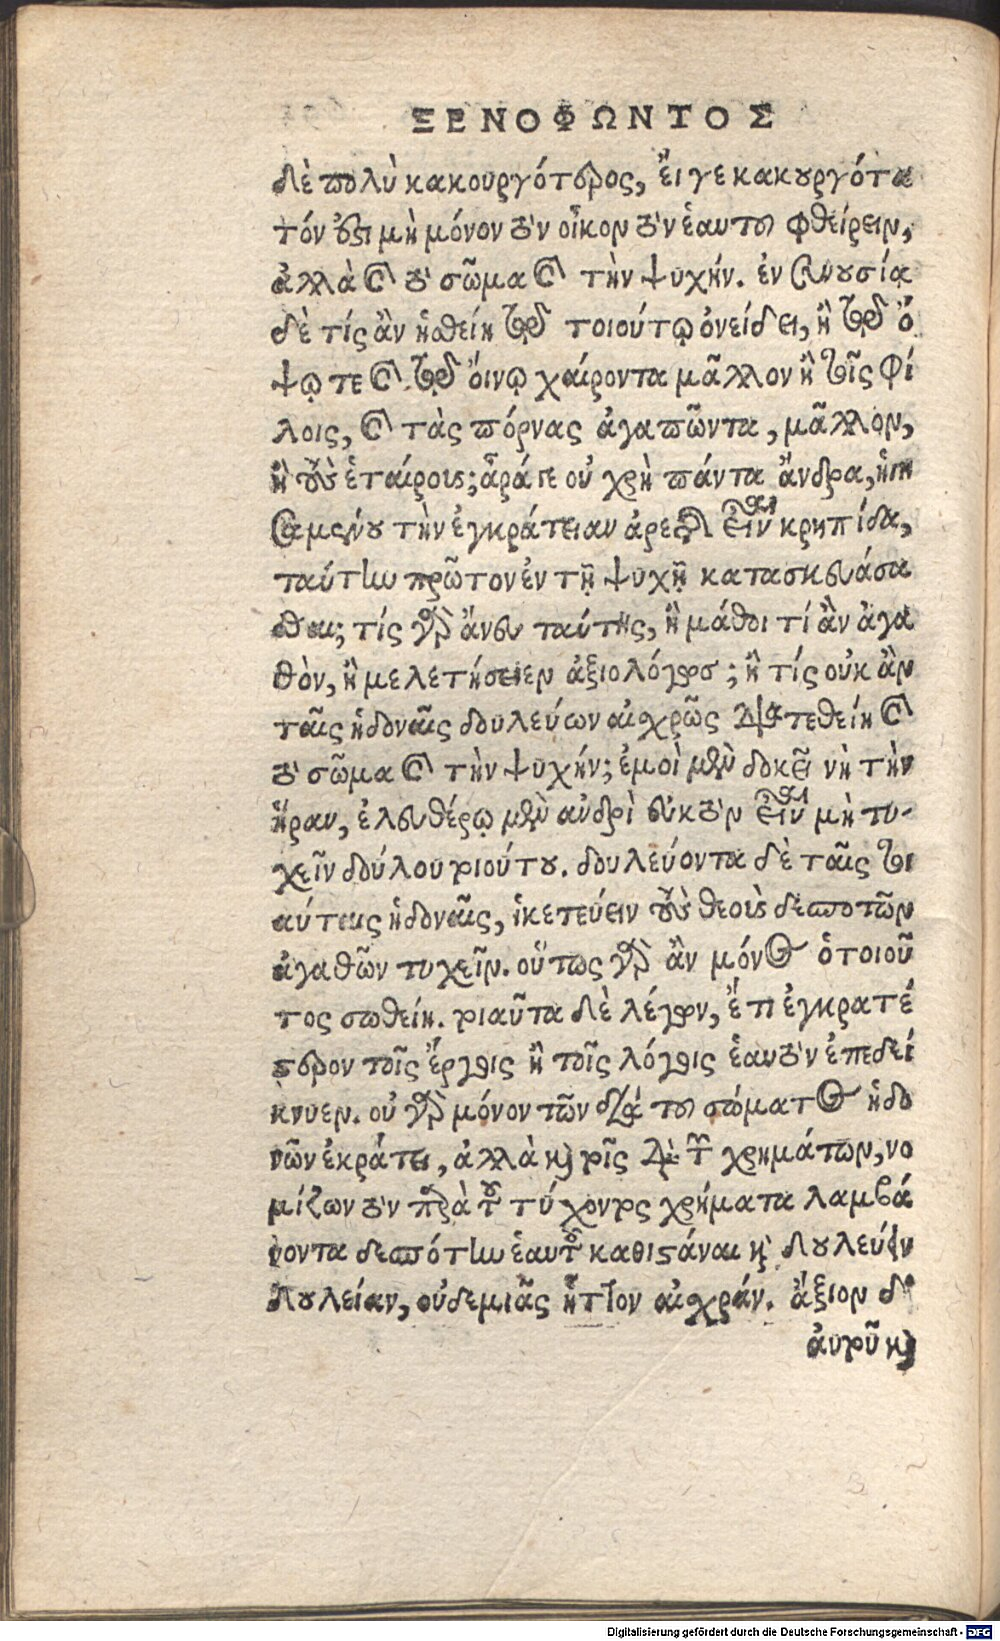 ΞΕΝΟΦΩΝΤΟΣ
δὲ πολὺ κακουργότερος, εἴ γε κακουργότα
τόν ἐστι μὴ μόνον τὸν οἶκον τὸν ἑαυτοῦ φθείρειν,
ἀλλὰ καὶ τὸ σῶμα καὶ τὴν ψυχήν. ἐν συνουσίᾳ
δὲ τίς ἂν ἡσθείη τῷ τοιούτῳ ὀνείδει, ἢ τῷ ὄ
ψῳ τε καὶ τῷ οἴνῳ χαίροντα μᾶλλον ἢ τοῖς φί
λοις, καὶ τὰς πόρνας ἀγαπῶντα, μᾶλλον,
ἢ τοὺς ἑταίρους; ἆρά γε οὐ χρὴ πάντα ἄνδρα, ἡγη
σάμενον τὴν ἐγκράτειαν ἀρετῆς εἶναι κρηπίδα,
ταύτην πρῶτον ἐν τῇ ψυχῇ κατασκευάσα
σθαι; τίς γὰρ ἄνευ ταύτης, ἢ μάθοι τί ἂν ἀγα
θὸν, ἢ μελετήσειεν ἀξιολόγως; ἢ τίς οὐκ ἂν
ταῖς ἡδοναῖς δουλεύων αἰσχρῶς διατεθείη καὶ
τὸ σῶμα καὶ τὴν ψυχήν; ἐμοὶ μὲν δοκεῖ νὴ τὴν
ἥραν, ἐλευθέρῳ μὲν ἀνδρὶ εὐκτὸν εἶναι μὴ τυ-
χεῖν δούλου τοιούτου. δουλεύοντα δὲ ταῖς τοι
αύταις ἡδοναῖς, ἱκετεύειν τοὺς θεοὺς δεσποτῶν
ἀγαθῶν τυχεῖν. οὕτως γὰρ ἂν μόνος ὁ τοιοῦ
τος σωθείη. τοιαῦτα δὲ λέγων, ἔτι ἐγκρατέ
στερον τοῖς ἔργοις ἢ τοῖς λόγοις ἑαυτὸν ἐπεδεί
κνυεν. οὐ γὰρ μόνον τῶν διὰ τοῦ σώματος ἡδο
νῶν ἐκράτει, ἀλλὰ καὶ τοῖς διὰ τῶν χρημάτων, νο
μίζων τὸν παρὰ τοῦ τύχοντος χρήματα λαμβά
νοντα δεσπότην ἑαυτοῦ καθιστάναι καὶ δουλεύειν
δουλείαν, οὐδεμιᾶς ἧττον αἰσχράν. ἄξιον δ'
αὐτοῦ καὶ
Digitalisierung gefördert durch die Deutsche Forschungsgemeinschaft - DFG